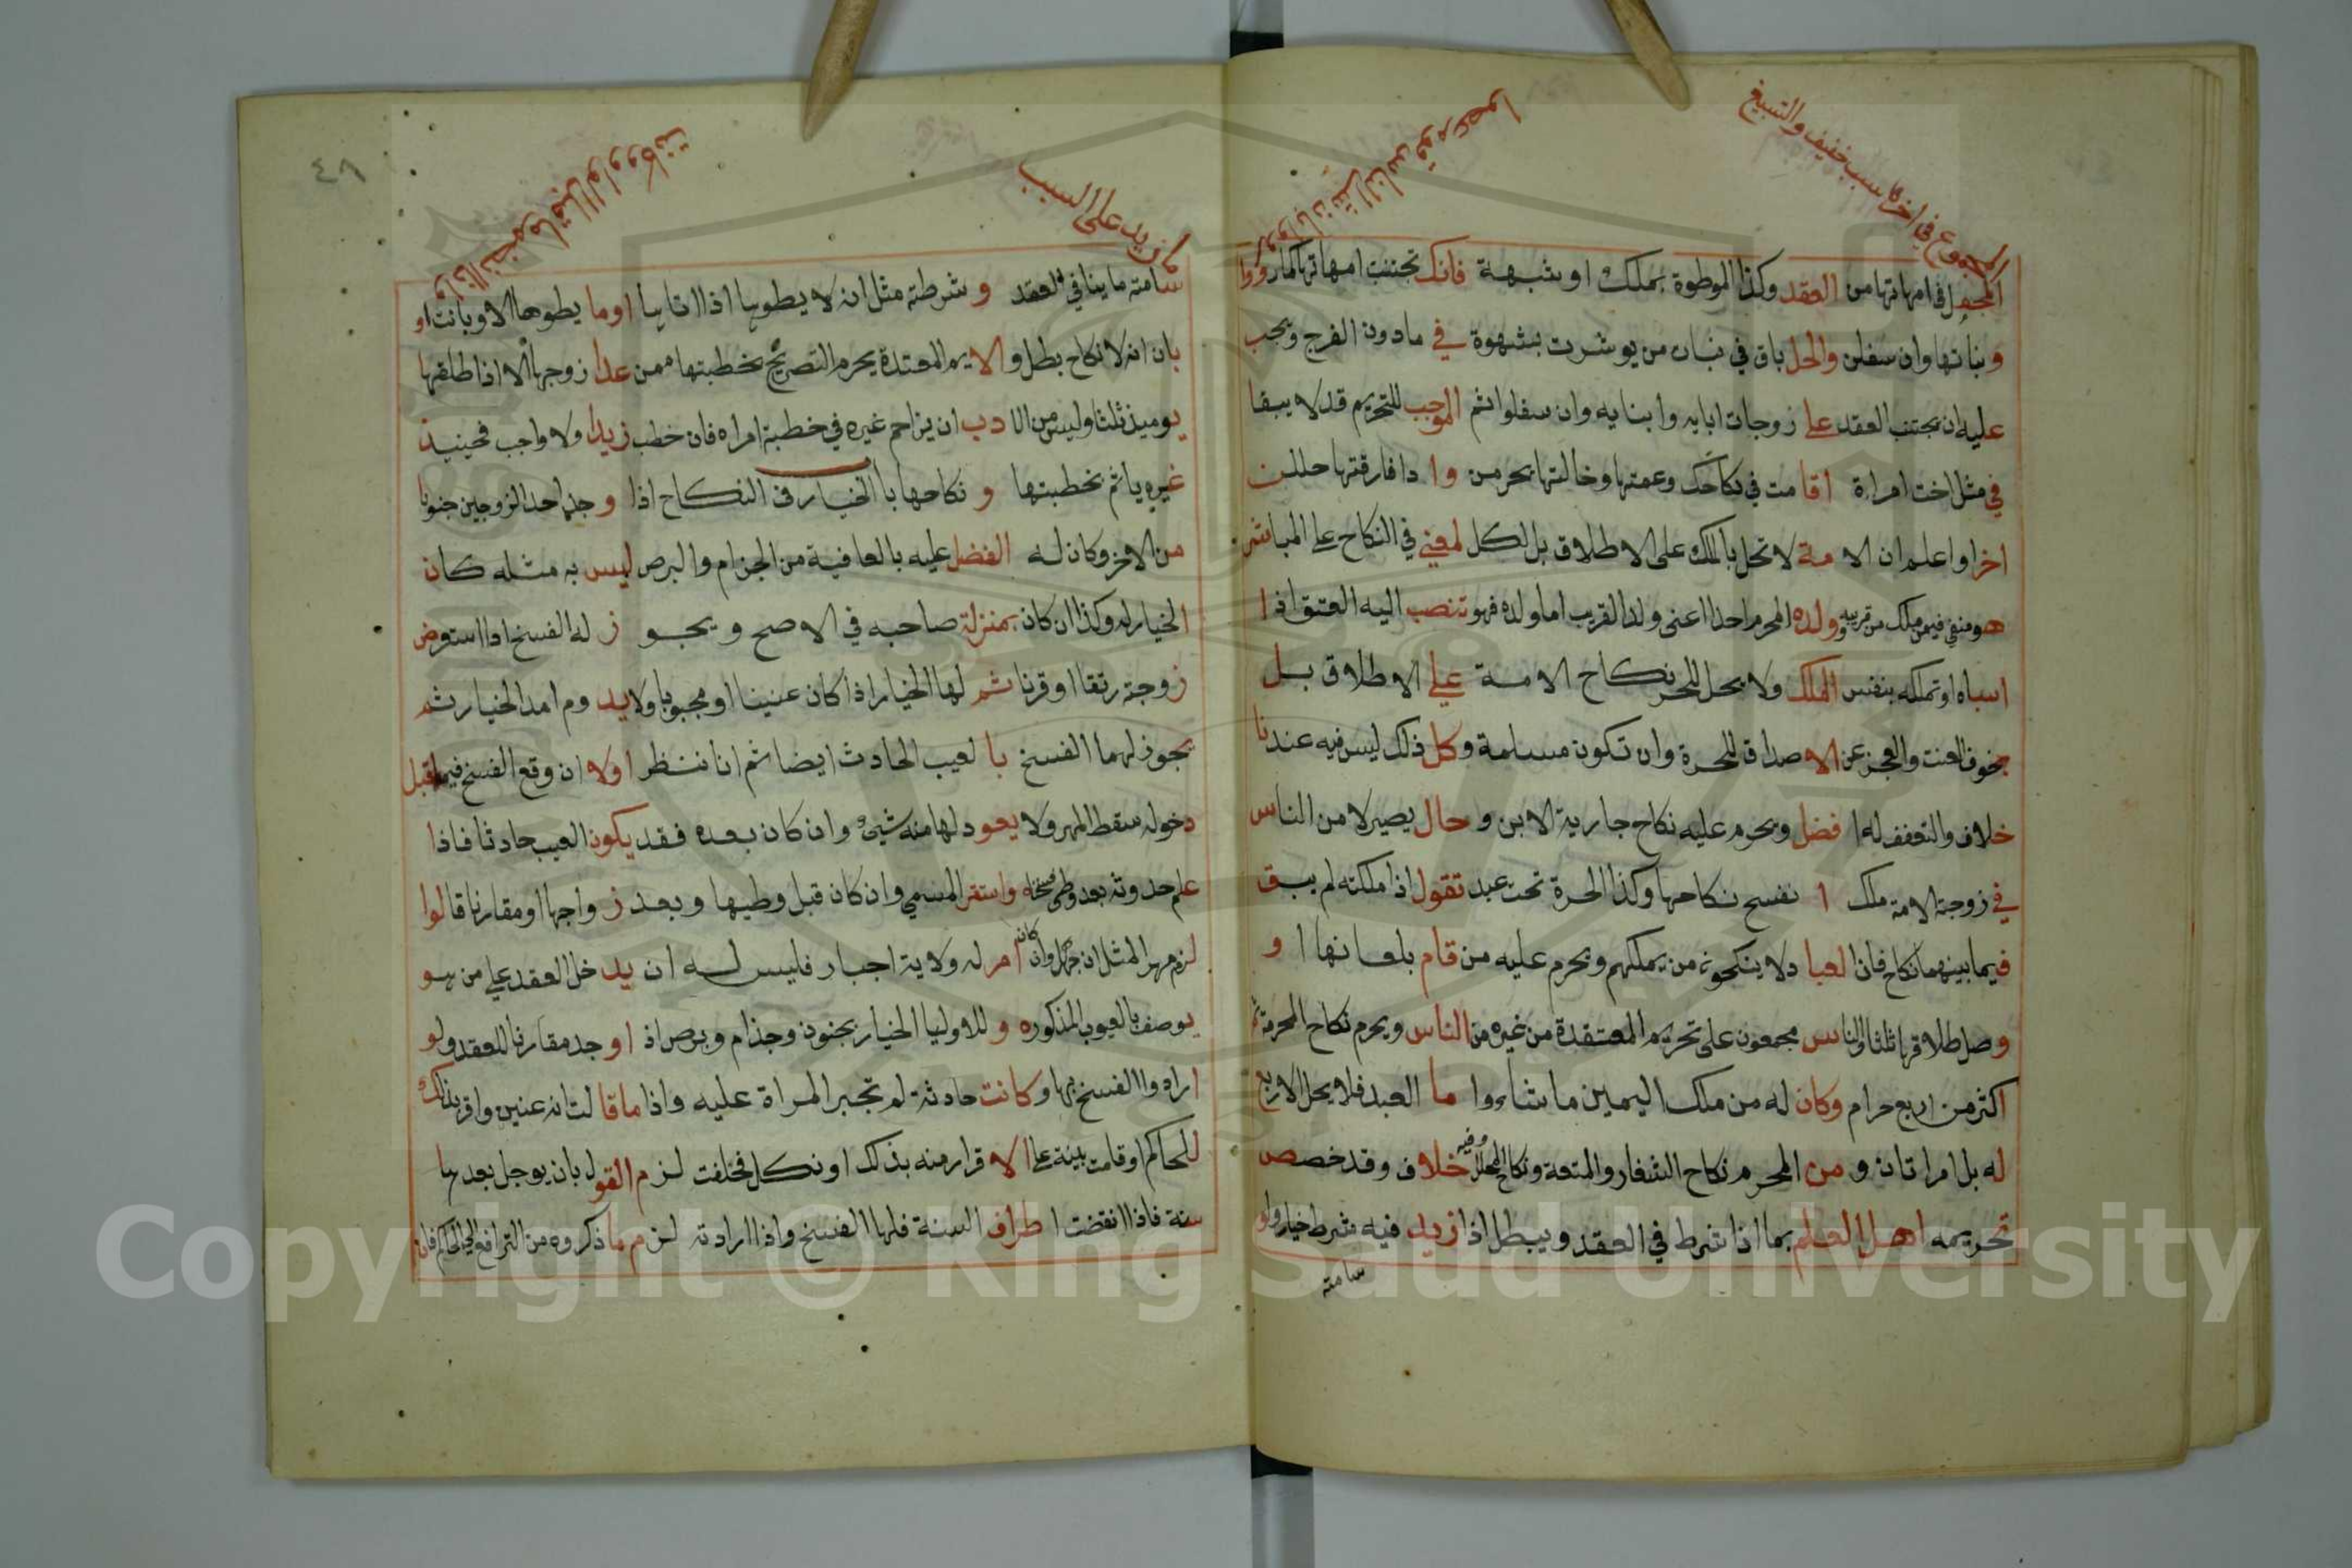 المجموع في اخر كل سبب خفيف والتسبيغ
المحل في امهاتها من العقد وكذا الموطوة بملك او شبهة فانك تجتنب امهاتها كما رووا
وبناتها وان سفلن والحل باق في بنات من بوشرت بشهوة في مادون الفرج ويجب
عليه ان يجتنب العقد على زوجات ابايه وابنايه وان سفلوا ثم الموجب للتحريم قد لا يبقا
في مثل اخت امراة اقامت في نكاحك وعمتها وخالتها يحرمن وا ذا فارقتها حللن
اخرا واعلم ان الا مة لا تحل بالملك على الاطلاق بل لكل لمعني في النكاح على المباشر
هو منفي فيمن ملك من قريبه وولده المحرم احدا اعني ولد القريب اما ولده فهو تنصب اليه العتق اذا
اسباه او تملكه بنفس الملك ولا يحل للحر نكاح الامة علي الاطلاق بل
بخوف العنت والعجز عن الا صداق للحرة وان تكون مسلمة وكل ذلك ليس فيه عندنا
خلاف والتعفف له ا فضل ويحرم عليه نكاح جارية الابن و حال يصير لا من الناس
في زوجة الامة ملك ا نفسح نكاحها وكذا الحرة تحت عبد تقول اذا ملكته لم يبق
فيما بينهما نكاح فان العبا د لا ينكحونه من يملكهم ويحرم عليه من قام بلعانها ا و
وصل طلاقها ثلثا والناس مجمعون على تحريم المعتقدة من غيره من الناس ويحرم نكاح المحرمة
اكثر من اربع حرام وكان له من ملك اليمين ما شاءوا ما العبد فلا يحل الاربع
له بل امراتان و من المحرم نكاح الشغار والمتعة ونكاح المحلل وفيه خلاف وقد خصص
تحريمه اهل العلم بما اذا شرط في العقد ويبطل اذا زيد فيه شرط خيار ولو
سامته
زيد على السبب
سامته ما ينافي العقد و شرطته مثل ان لا يطوبها اذا اتاها اوما يطوها الا وبانت او
بان انه لا نكاح بطل و الا يم المعتدة يحرم التصريح بخطبتها ممن عدا زوجها الا اذا طلقها
يوميذ ثلثا وليس من الا دب ان يزاحم غيره في خطبة امراه فان خطب زيدا ولا واجب فحينيذ
غيره ياثم بخطبتها و نكاحها با الخيار في النكاح اذا و جد احد الزوجين جنونا
من الاخر وكان له الفضل عليه بالعافية من الجذام والبرص ليس به مثله كان
الخيار له وكذا ان كان بمنزلة صاحبه في الاصح ويجو ز له الفسخ اذا استعرض
زوجة رتقا او قرنا ثم لها الخيار اذا كان عنينا او مجبوبا ولا يد وم امد الخيار ثم
يجوز لهما الفسخ با لعيب الحادث ايضا ثم انا ننظر اولا ان وقع الفسخ فيما قبل
دخوله سقط المهر ولا يعود لها منه شيء وان كان بعده فقد يكون العيب حادثا فاذا
علم حدوثه بعد وطي فسخه واستقر المسمي وان كان قبل وطيها وبعد ز واجها او مقارنا قالوا
لزم مهر المثل ان جهل وان كان امر له ولاية اجبار فليس له ان يد خل العقد علي من هو
يوصف بالعيوب المذكوره و للاوليا الخيار بجنون وجذام وبرص اذ او جد مقارنا للعقد ولو
ارادوا الفسخ بها و كانت حادثة لم تجبر المراة عليه واذا ما قا لت انه عنين واقر بذلك
للحاكم او قامت بينة علي الا قرار منه بذلك او نكل فحلفت لزم القول بان يوجل بعدها
سنة فاذا انقضت ا طراف السنة فلها الفسخ واذا ارادته لزم ما ذكروه من الترافع الي الحاكم فان
٤٨
Copyright © King Saud University